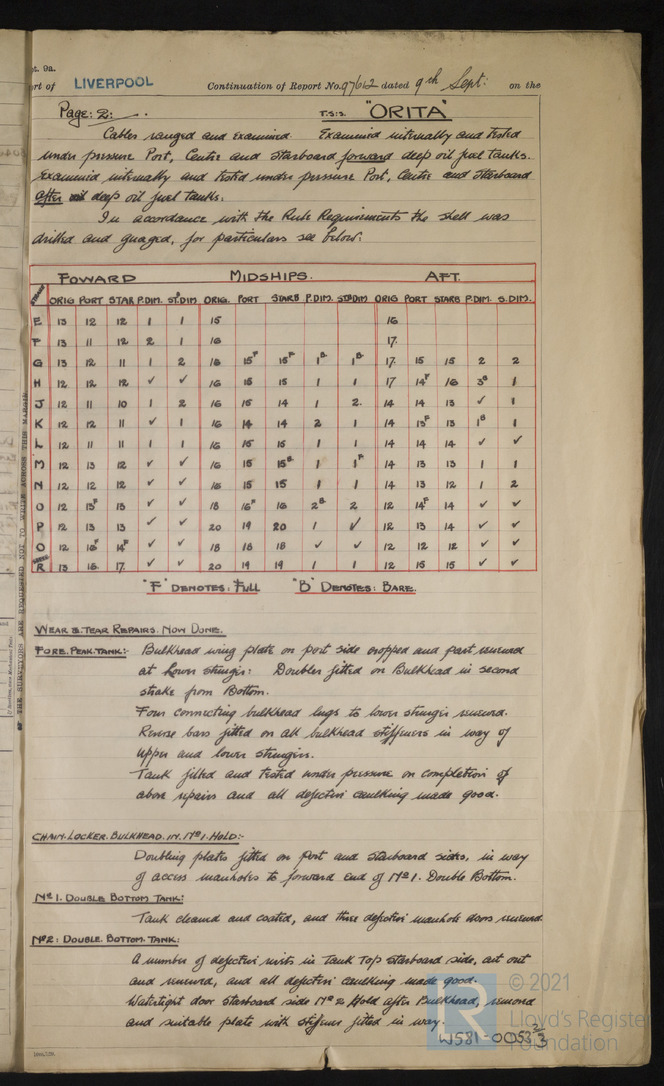 pt. 9a.
ort of LIVERPOOL Continuation of Report No. 97612 dated 9th Sept: on the
Page: 2: T.S.S. "ORITA"
Cables ranged and examined Examined internally and tested
under pressure Port, Centre and Starboard forward deep oil fuel tanks.
Examined internally and tested under pressure Port, Centre and Starboard
after deep oil fuel tanks.
In accordance with the Rule Requirements the shell was
drilled and guaged, for particulars see below:
FOWARD MIDSHIPS. AFT.
STRAKE ORIG PORT STAR P.DIM. ST.DIM ORIG. PORT STARB P.DIM. STB.DIM ORIG PORT STARB P.DIM. S.DIM.
E 13 12 12 1 1 15 16
F 13 11 12 2 1 16 17.
G 13 12 11 1 2 16 15F 15F 1B 1B 17. 15 15 2 2
H 12 12 12 ✓ ✓ 16 15 15 1 1 17 14F 16 3B 1
J 12 11 10 1 2 16 15 14 1 2. 14 14 13 ✓ 1
K 12 12 11 ✓ 1 16 14 14 2 1 14 13F 13 1B 1
L 12 11 11 1 1 16 15 15 1 1 14 14 14 ✓ ✓
M 12 13 12 ✓ ✓ 16 15 15B 1 1F 14 13 13 1 1
N 12 12 12 ✓ ✓ 16 15 15 1 1 14 13 12 1 2
O 12 13F 13 ✓ ✓ 18 16F 16 2B 2 12 14F 14 ✓ ✓
P 12 13 13 ✓ ✓ 20 19 20 1 ✓ 12 13 14 ✓ ✓
O 12 16F 14F ✓ ✓ 18 18 18 ✓ ✓ 12 12 12 ✓ ✓
R 13 16 17. ✓ ✓ 20 19 19 1 1 12 15 15 ✓ ✓
"F" DENOTES: FULL "B" DENOTES: BARE.
WEAR & TEAR REPAIRS. NOW DONE.
FORE. PEAK. TANK:- Bulkhead wing plate on port side cropped and part renewed
at lower stringer: Doubler fitted on Bulkhead in second
strake from Bottom.
Four connecting bulkhead lugs to lower stringer renewed.
Reverse bars fitted on all bulkhead stiffeners in way of
upper and lower stringers.
Tank filled and tested under pressure on completion of
above repairs and all defective caulking made good.
CHAIN. LOCKER. BULKHEAD. IN. No 1. HOLD:-
Doubling plates fitted on Port and Starboard sides, in way
of access manholes to forward end of No 1. Double Bottom.
No 1. DOUBLE BOTTOM TANK:
Tank cleaned and coated, and three defective manhole doors renewed.
No 2: DOUBLE. BOTTOM. TANK:
A number of defective rivets in Tank Top Starboard side, cut out
and renewed, and all defective caulking made good.
Watertight door Starboard side No 2 Hold after Bulkhead, removed
and suitable plate with stiffener fitted in way.
OF THE SURVEYORS ARE REQUESTED NOT TO WRITE ACROSS THIS MARGIN
© 2021
Lloyd's Register
Foundation
W581-0053 3/3